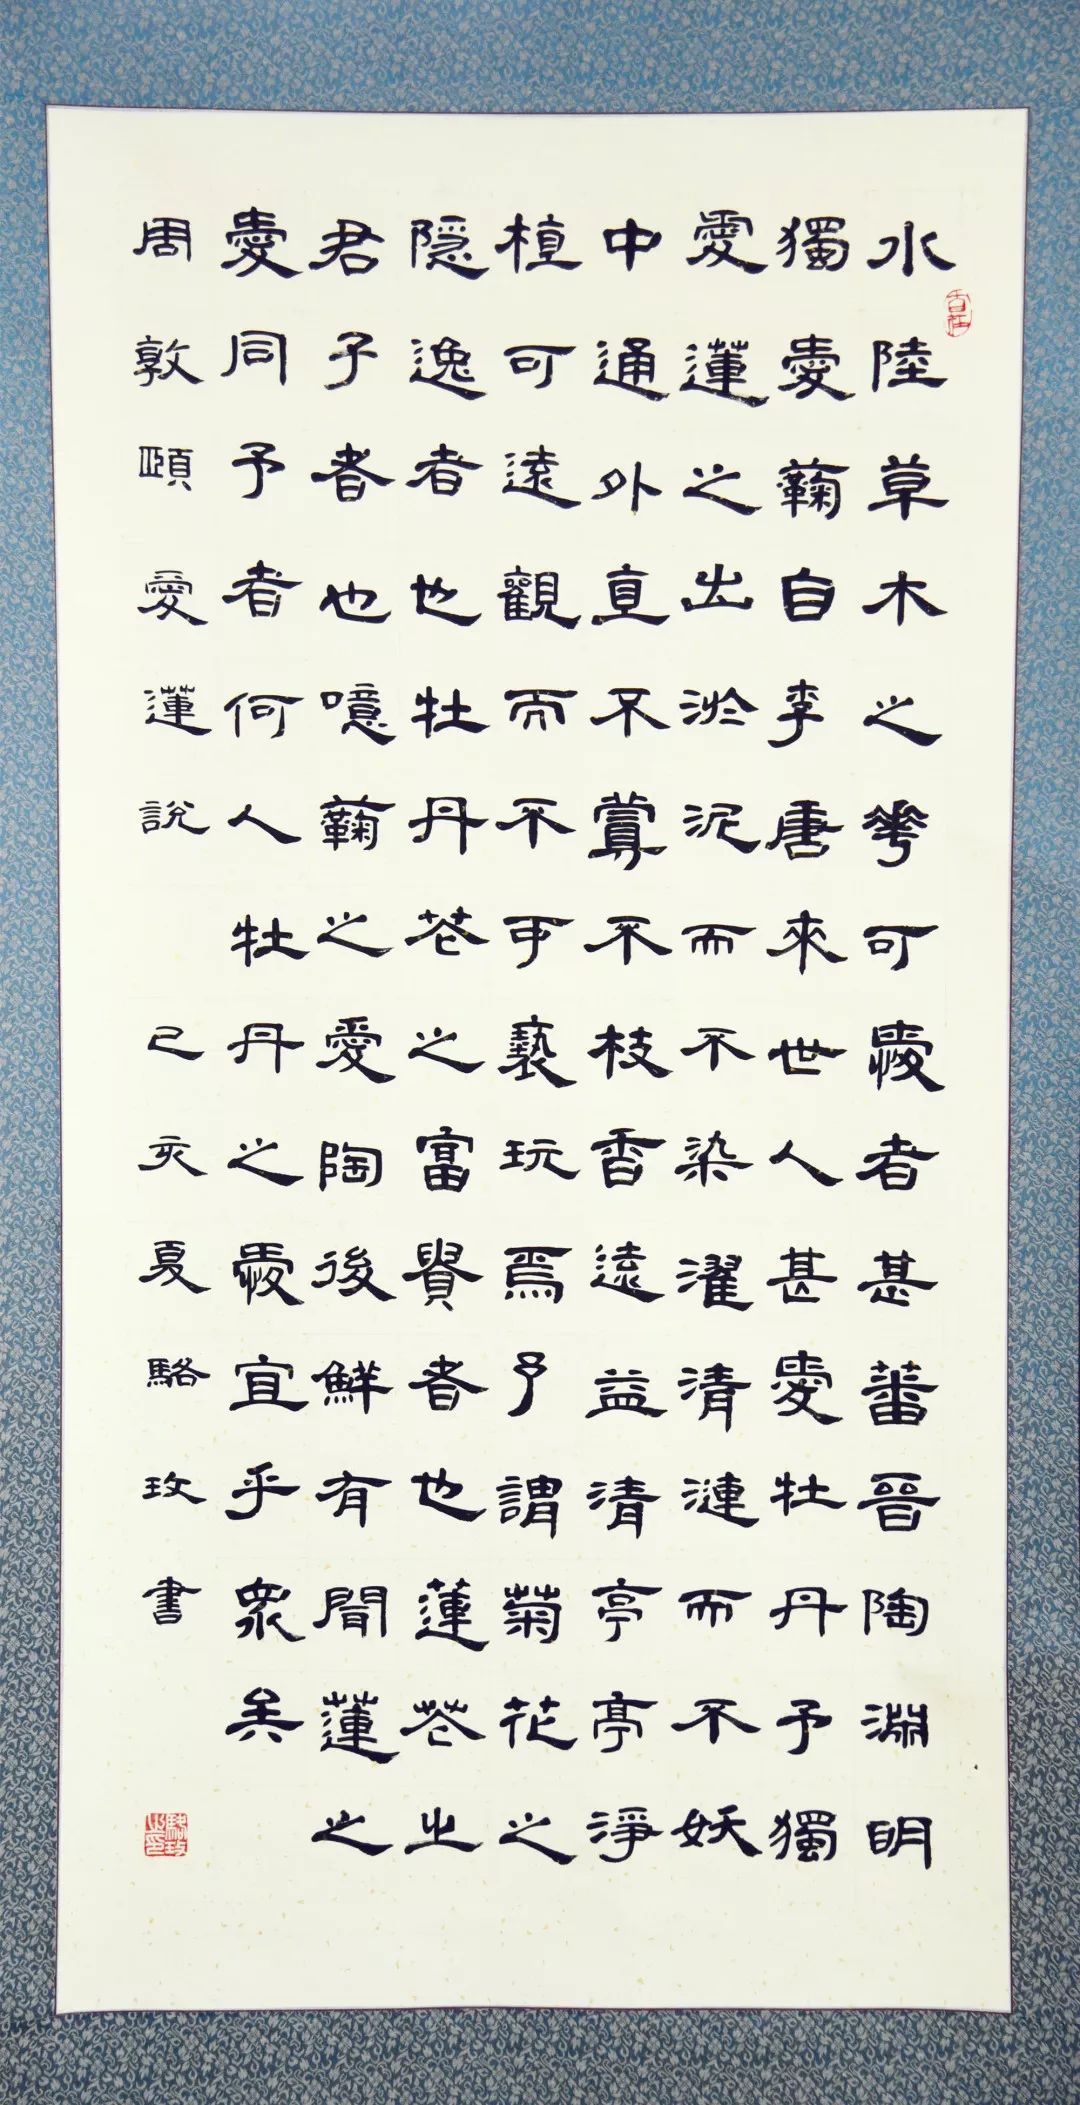 水陸草木之華可愛者甚蕃晉陶淵明
獨愛蘜自李唐來世人甚愛牡丹予獨
愛蓮之出淤泥而不染濯清漣而不妖
中通外直不蔓不枝香遠益清亭亭淨
植可遠觀而不可褻玩焉予謂菊花之
隐逸者也牡丹花之富貴者也蓮花之
君子者也噫蘜之愛陶後鮮有聞蓮之
愛同予者何人牡丹之愛宜乎眾矣
周敦頤愛蓮說 己亥夏駱玫書
駱玫之印